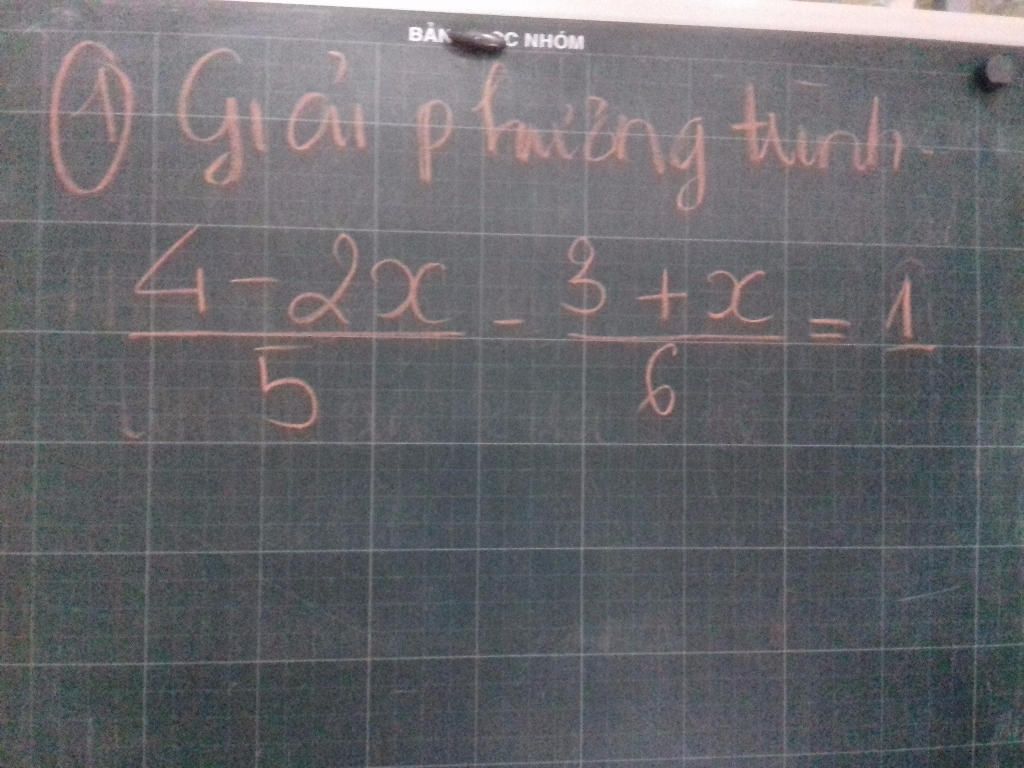 BẢN HỌC NHÓM
① Giải phương trình
4 - 2x / 5 - 3 + x / 6 = 1